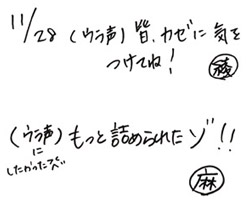 11/28 (ウラ声) 皆、カゼに気を
つけてね!
綾
(ウラ声) もっと詰められたゾ!!
に
したかったズベ
麻